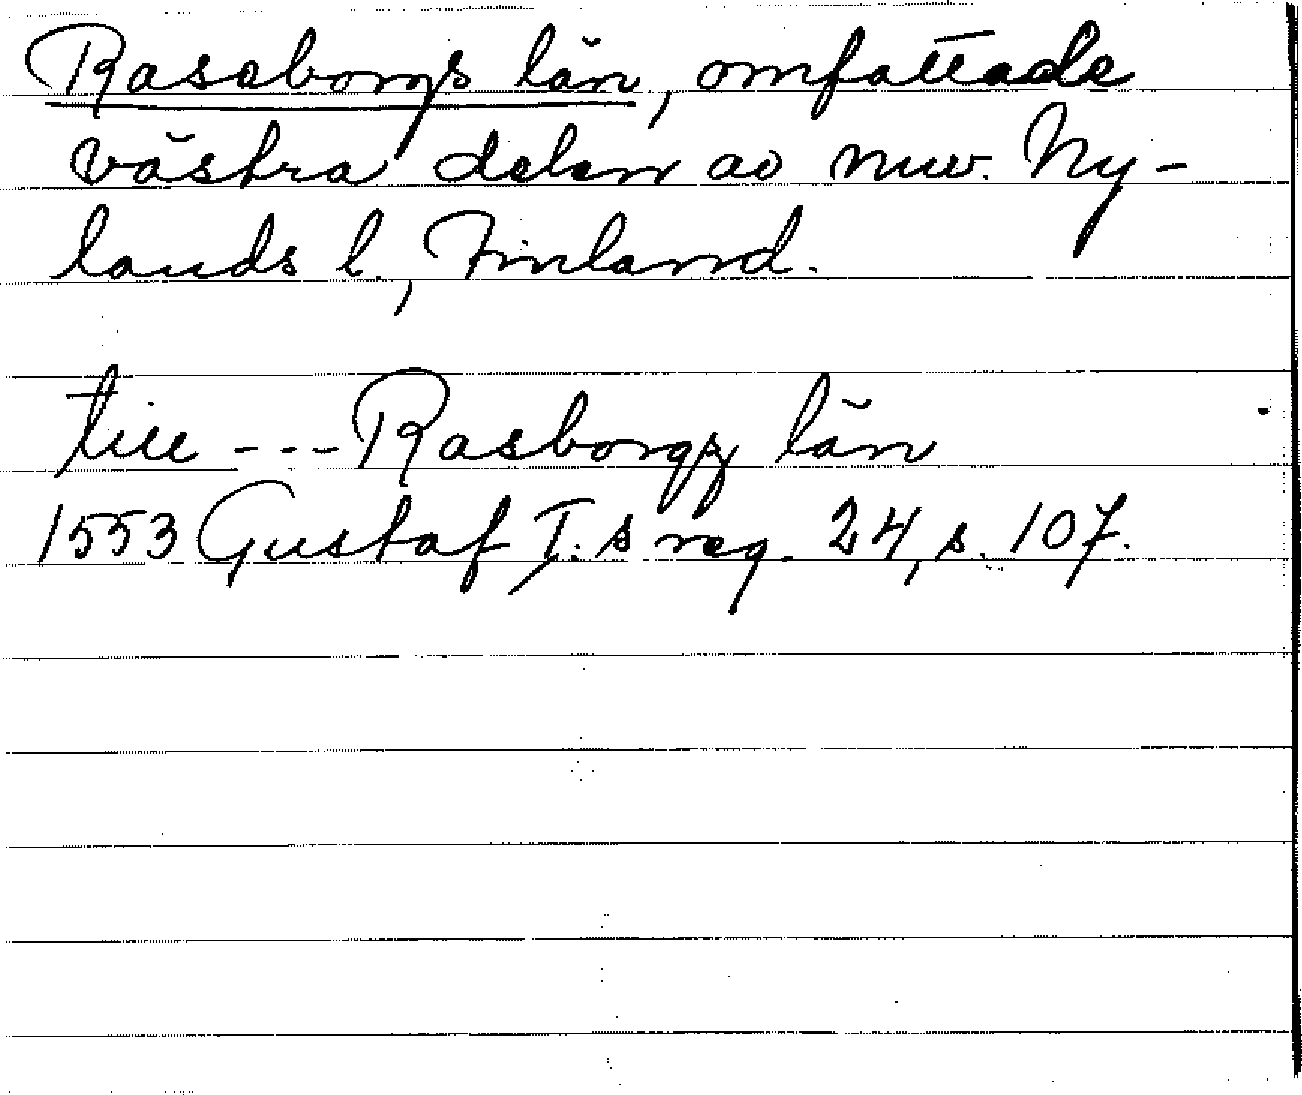 Raseborgs län, omfattade
västra delen av nuv. Ny-
lands l., Finland.
till --- Rasborgz län
1553 Gustaf I:s reg. 24, s. 107.